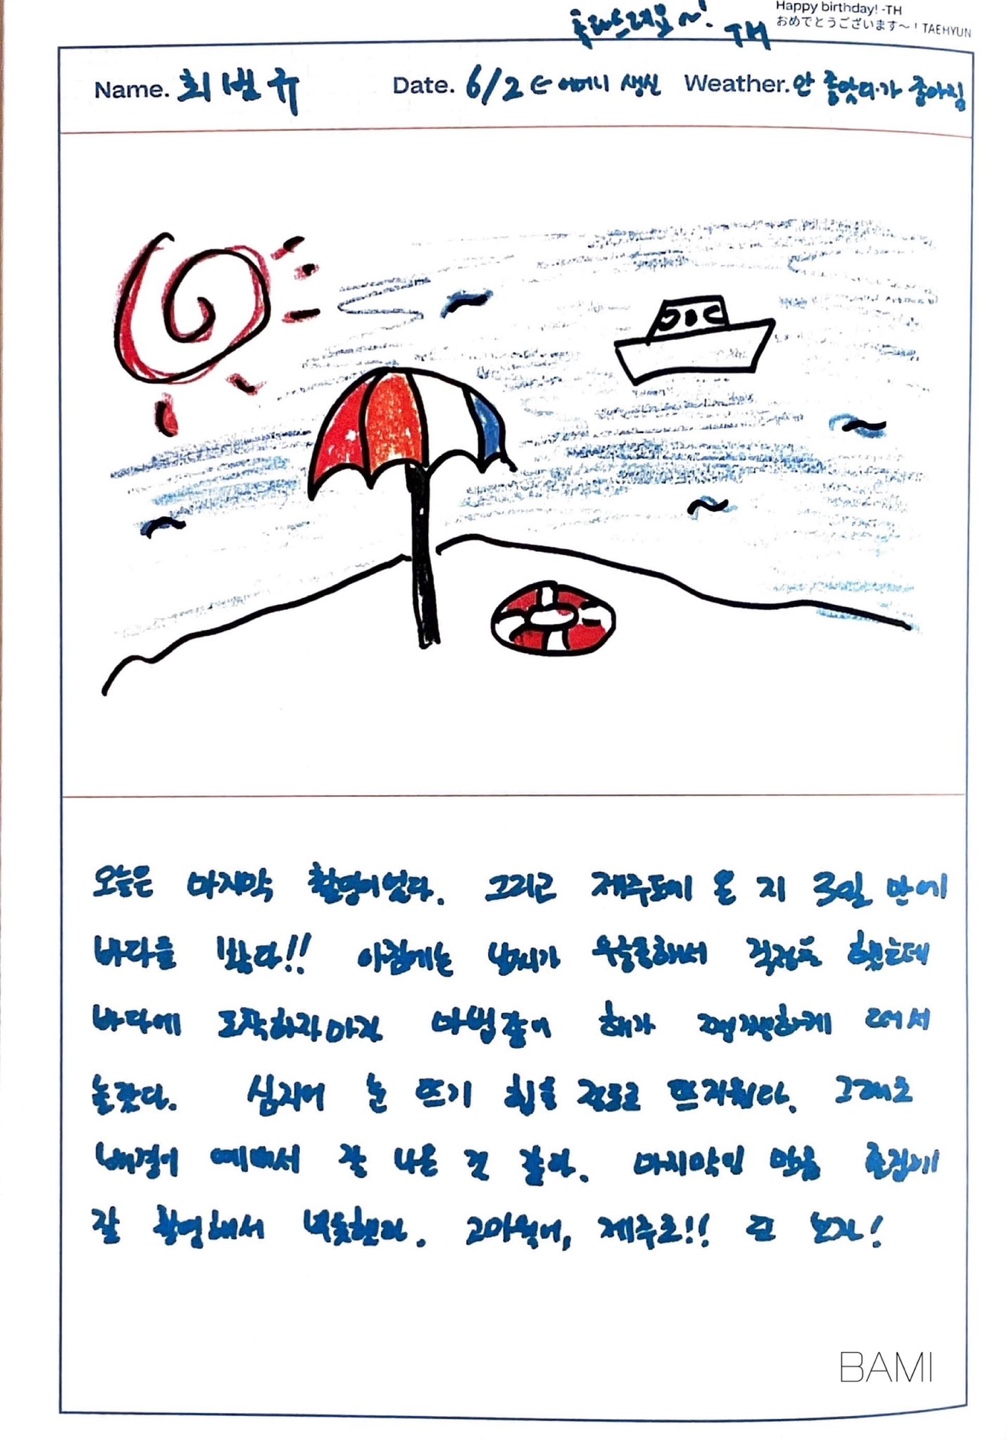 축하드려요~! TH
Happy birthday! -TH
おめでとうございます~! TAEHYUN
Name. 최범규 Date. 6/2 ← 어머니 생신 Weather. 안 좋았다가 좋아짐
오늘은 마지막 촬영이었다. 그리고 제주도에 온 지 3일 만에
바다를 봤다!! 아침에는 날씨가 우중충해서 걱정을 했는데
바다에 도착하자마자 마법같이 해가 쨍쨍하게 떠서
놀랐다. 심지어 눈 뜨기 힘들 정도로 뜨거웠다. 그래도
배경이 예뻐서 잘 나온 것 같다. 마지막인 만큼 즐겁게
잘 촬영해서 뿌듯했다. 고마웠어, 제주도!! 또 보자!
BAMI